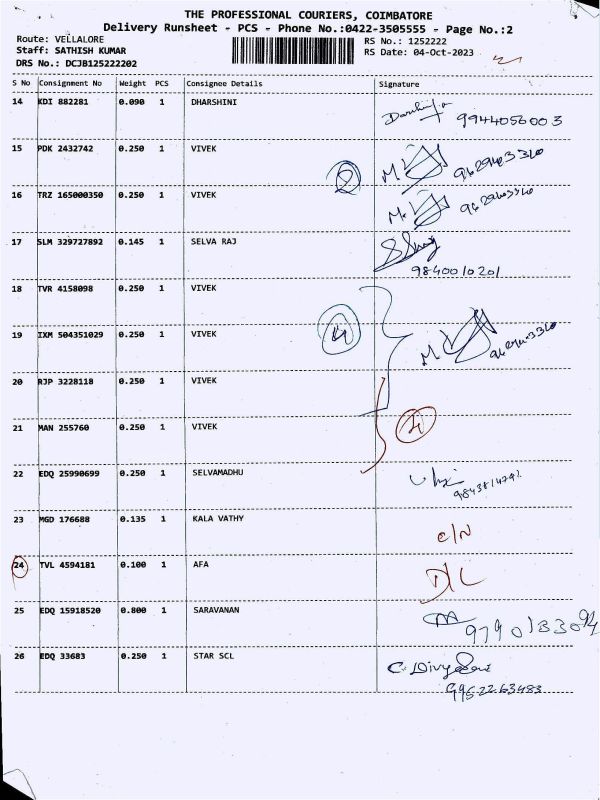 THE PROFESSIONAL COURIERS, COIMBATORE
Delivery Runsheet - PCS - Phone No.:0422-3505555 - Page No.:2
Route: VELLALORE RS No.: 1252222
Staff: SATHISH KUMAR RS Date: 04-Oct-2023
DRS No.: DCJB125222202
S No Consignment No Weight PCS Consignee Details Signature
14 KDI 882281 0.090 1 DHARSHINI
9944056003
15 PDK 2432742 0.250 1 VIVEK
2 M 9629403340
16 TRZ 165000350 0.250 1 VIVEK
M.
17 SLM 329727892 0.145 1 SELVA RAJ
9840010201
18 TVR 4158098 0.250 1 VIVEK
19 IXM 504351029 0.250 1 VIVEK
4 M
20 RJP 3228118 0.250 1 VIVEK
21 MAN 255760 0.250 1 VIVEK
4
22 EDQ 25990699 0.250 1 SELVAMADHU
23 MGD 176688 0.135 1 KALA VATHY
C/N
24 TVL 4594181 0.100 1 AFA
D/L
25 EDQ 15918520 0.800 1 SARAVANAN
26 EDQ 33683 0.250 1 STAR SCL
9952263483